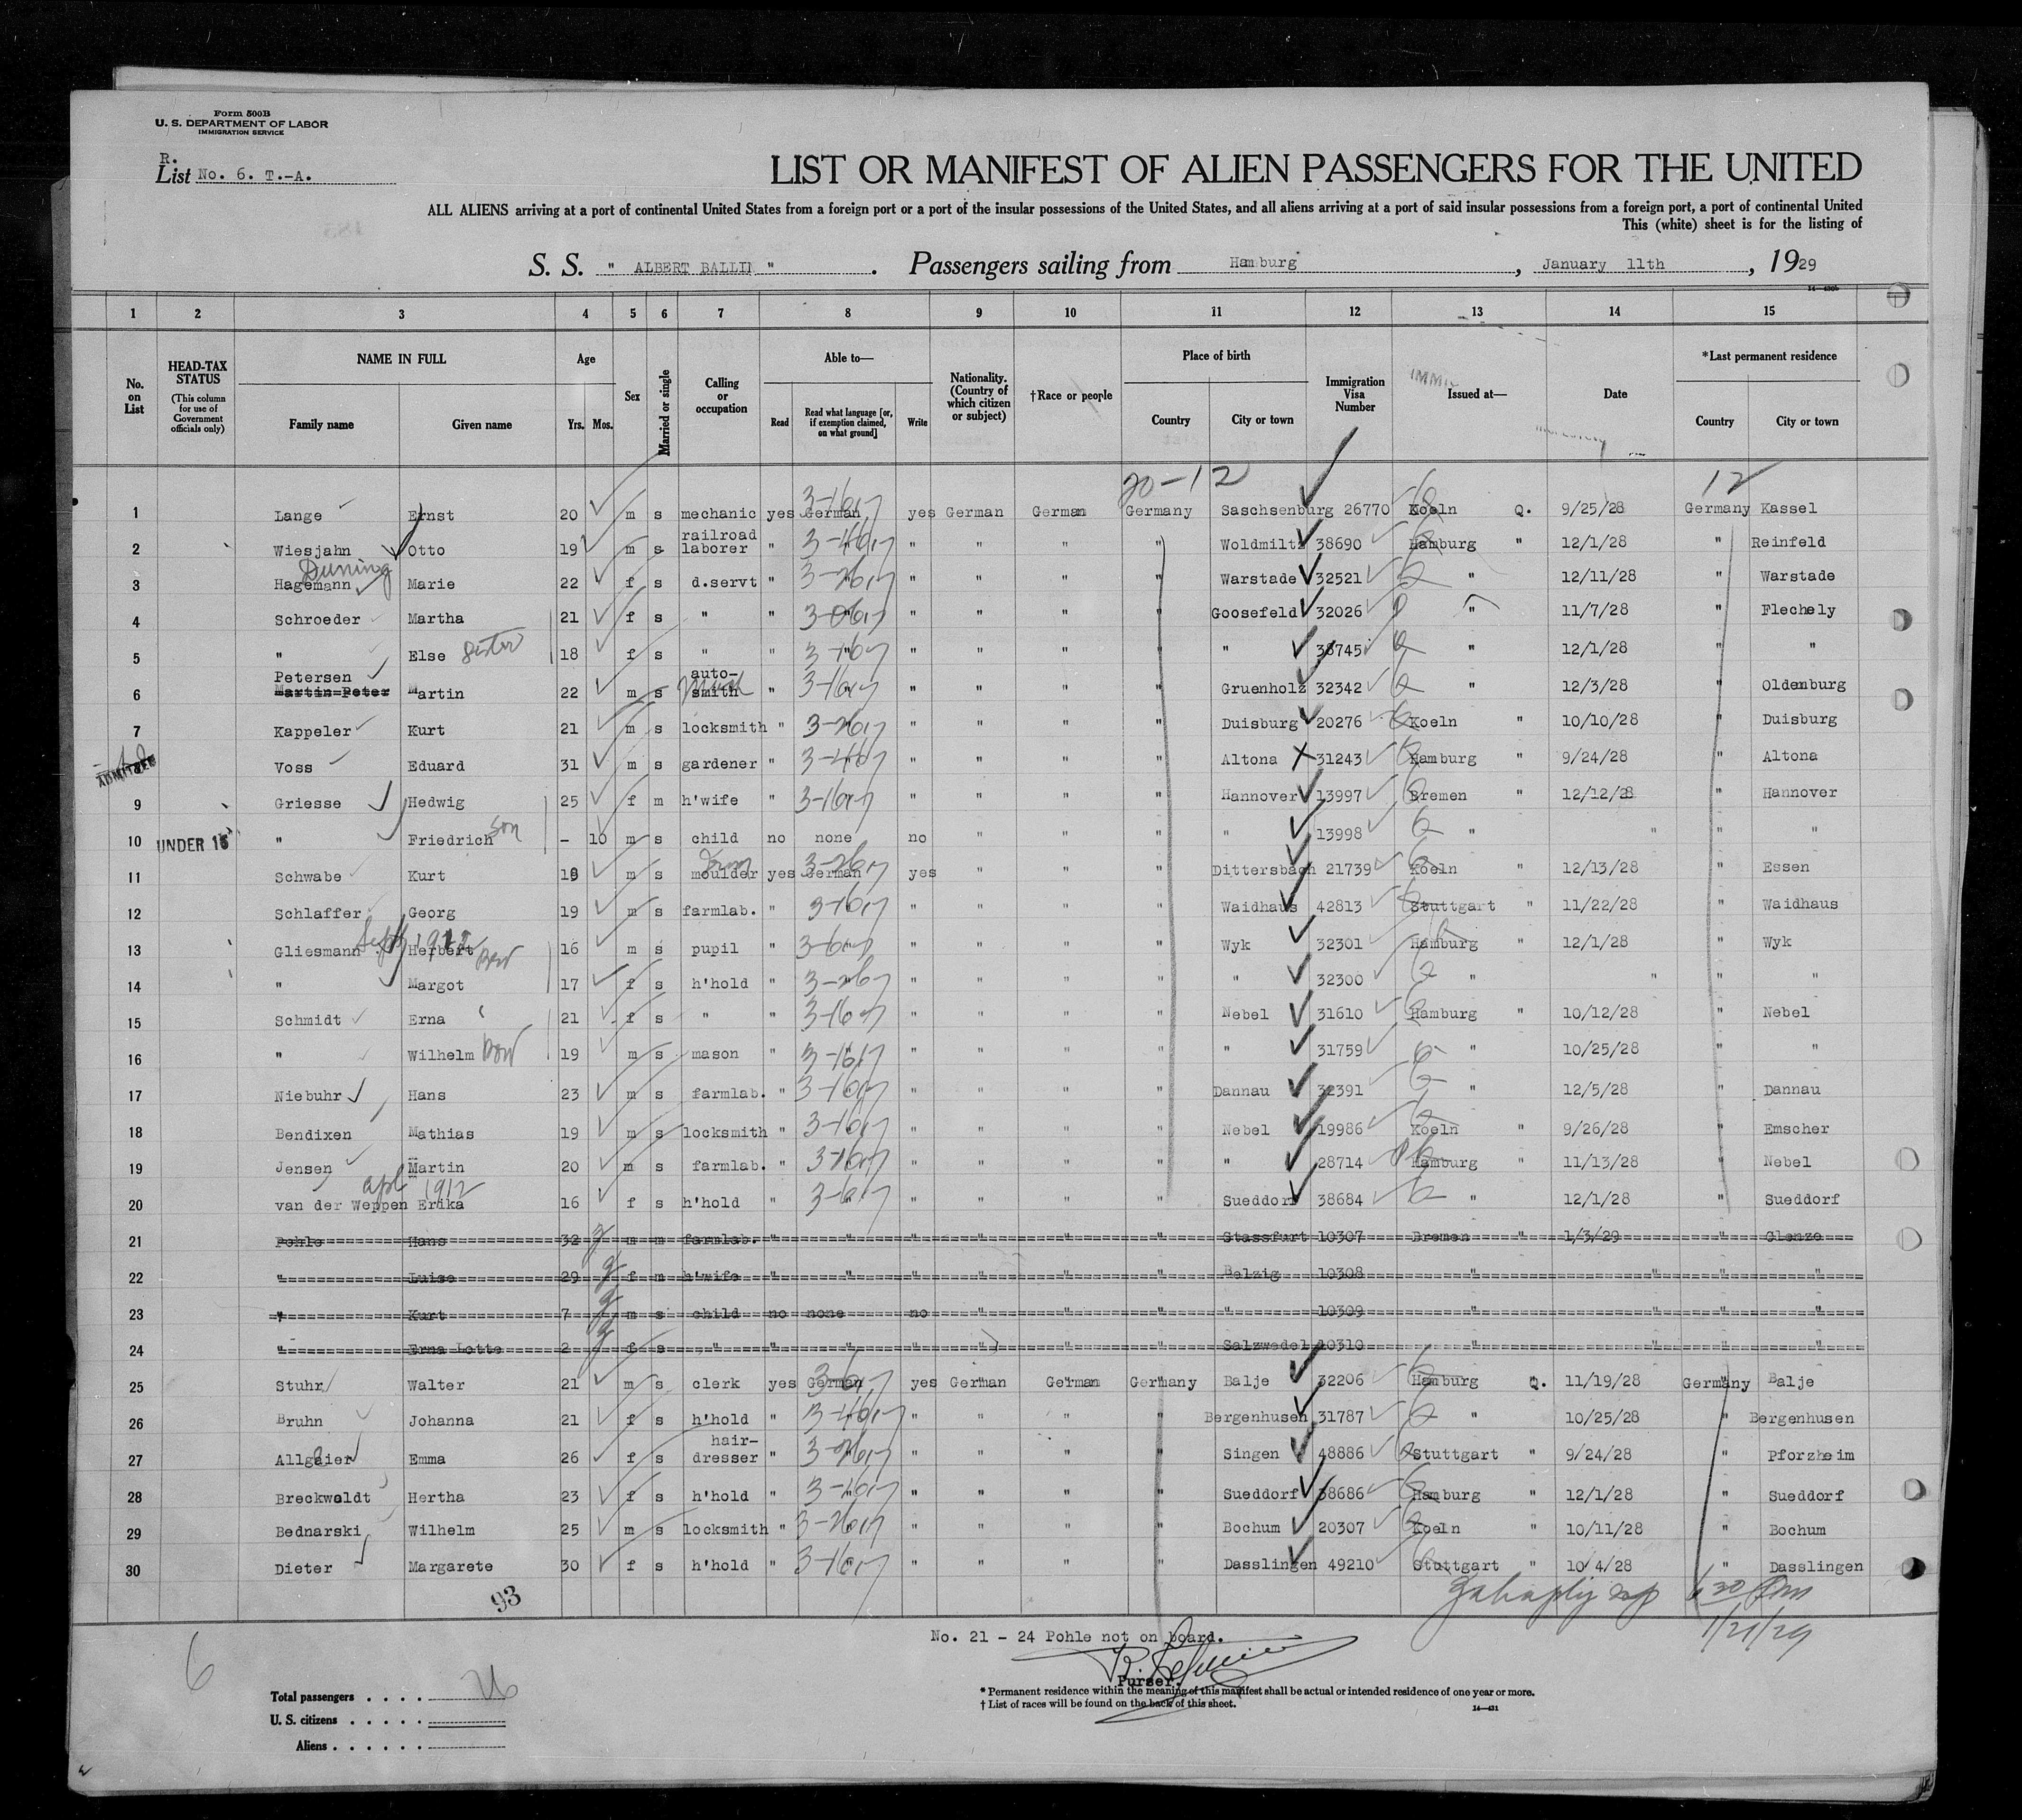 Form 500B
U. S. DEPARTMENT OF LABOR
IMMIGRATION SERVICE
R.
List No. 6. T.-A.
LIST OR MANIFEST OF ALIEN PASSENGERS FOR THE UNITED
ALL ALIENS arriving at a port of continental United States from a foreign port or a port of the insular possessions of the United States, and all aliens arriving at a port of said insular possessions from a foreign port, a port of continental United
This (white) sheet is for the listing of
S. S. " ALBERT BALLIN ". Passengers sailing from Hamburg, January 11th, 1929
1 2 3 4 5 6 7 8 9 10 11 12 13 14 15
No. on List
HEAD-TAX STATUS (This column for use of Government officials only)
NAME IN FULL Family name Given name
Age Yrs. Mos.
Sex
Married or single
Calling or occupation
Able to— Read Read what language [or, if exemption claimed, on what ground] Write
Nationality. (Country of which citizen or subject)
†Race or people
Place of birth Country City or town
Immigration Visa Number
Issued at—
Date
*Last permanent residence Country City or town
20-12 12
1 Lange Ernst 20 m s mechanic yes German yes German German Germany Saschsenburg 26770 Koeln Q. 9/25/28 Germany Kassel
2 Wiesjahn Otto 19 m s railroad laborer " " " " " " Woldmiltz 38690 Hamburg " 12/1/28 " Reinfeld
Duning
3 Hagemann Marie 22 f s d.servt " " " " " " Warstade 32521 " 12/11/28 " Warstade
4 Schroeder Martha 21 f s " " " " " " " Goosefeld 32026 " 11/7/28 " Flechely
5 " Else sister 18 f s " " " " " " " " 38745 " 12/1/28 " "
6 Petersen Martin-Peter Martin 22 m s auto-smith " " " " " " Gruenholz 32342 " 12/3/28 " Oldenburg
7 Kappeler Kurt 21 m s locksmith " " " " " " Duisburg 20276 Koeln " 10/10/28 " Duisburg
ADMITTED Voss Eduard 31 m s gardener " " " " " " Altona 31243 Hamburg " 9/24/28 " Altona
9 Griesse Hedwig 25 f m h'wife " " " " " " Hannover 13997 Bremen " 12/12/28 " Hannover
10 UNDER 16 " Friedrich son - 10 m s child no none no " " " " 13998 " " " "
11 Schwabe Kurt 18 m s moulder yes German yes " " " Dittersbach 21739 Koeln " 12/13/28 " Essen
12 Schlaffer Georg 19 m s farmlab. " " " " " " Waidhaus 42813 Stuttgart " 11/22/28 " Waidhaus
13 Gliesmann Herbert 16 m s pupil " " " " " " Wyk 32301 Hamburg " 12/1/28 " Wyk
14 " Margot 17 f s h'hold " " " " " " " 32300 " " " "
15 Schmidt Erna 21 f s " " " " " " " Nebel 31610 Hamburg " 10/12/28 " Nebel
16 " Wilhelm 19 m s mason " " " " " " " 31759 " 10/25/28 " "
17 Niebuhr Hans 23 m s farmlab. " " " " " " Dannau 32391 " 12/5/28 " Dannau
18 Bendixen Mathias 19 m s locksmith " " " " " " Nebel 19986 Koeln " 9/26/28 " Emscher
19 Jensen Martin 20 m s farmlab. " " " " " " " 28714 Hamburg " 11/13/28 " Nebel
apl 1912
20 van der Weppen Erika 16 f s h'hold " " " " " " Sueddorf 38684 " 12/1/28 " Sueddorf
21 Pohle Hans 32 m m farmlab. " " " " " " Stassfurt 10307 Bremen " 1/3/29 " Glenze
22 " Luise 29 f m h'wife " " " " " " Belzig 10308 " " " "
23 " Kurt 7 m s child no none no " " " " 10309 " " " "
24 " Erna Lotte 2 f s " " " " " " " Salzwedel 10310 " " " "
25 Stuhr Walter 21 m s clerk yes German yes German German Germany Balje 32206 Hamburg Q. 11/19/28 Germany Balje
26 Bruhn Johanna 21 f s h'hold " " " " " " Bergenhusen 31787 " 10/25/28 " Bergenhusen
27 Allgaier Emma 26 f s hair-dresser " " " " " " Singen 48886 Stuttgart " 9/24/28 " Pforzheim
28 Breckwoldt Hertha 23 f s h'hold " " " " " " Sueddorf 38686 Hamburg " 12/1/28 " Sueddorf
29 Bednarski Wilhelm 25 m s locksmith " " " " " " Bochum 20307 Koeln " 10/11/28 " Bochum
30 Dieter Margarete 30 f s h'hold " " " " " " Dasslingen 49210 Stuttgart " 10 4/28 " Dasslingen
93
6 30 Pm
1/21/29
No. 21 - 24 Pohle not on board.
Purser.
6
Total passengers . . . . 26
U. S. citizens . . . . .
Aliens . . . . . .
* Permanent residence within the meaning of this manifest shall be actual or intended residence of one year or more.
† List of races will be found on the back of this sheet.
14—431